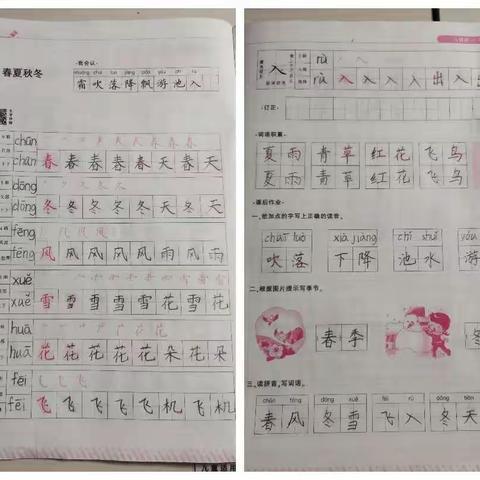 春夏秋冬
·我会认·
shuāng chuī luò jiàng piāo yóu chí rù
霜吹落降飘游池入
chūn
chūn 春春春春春天春天
dōng
dōng 冬冬冬冬冬天冬天
fēng
fēng 风风风风风雨风雨
xuě
xuě 雪雪雪雪雪花雪花
huā
huā 花花花花花朵花朵
fēi
fēi 飞飞飞飞飞机飞机
入
rù
rù 入入入入出入出入
·订正·
·词语积累·
夏雨 青草 红花 飞鸟
夏雨 青草 红花 飞鸟
·课后作业·
一、给加点的字写上正确的读音。
chuī luò xià jiàng chí shuǐ yóu
吹落 下降 池水 游
二、根据图片提示写季节。
春季 冬
三、读拼音，写词语。
chūn fēng dōng xuě fēi rù dōng tiān
春风 冬雪 飞入 冬天